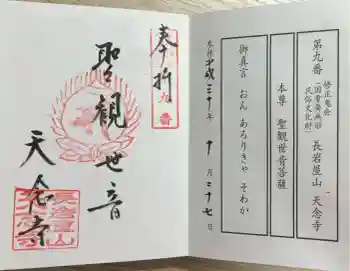 第九番
修正鬼会
(国重要無形
民俗文化財)
長岩屋山 天念寺
本尊 聖観世音菩薩
御真言 おん あろりきゃ そわか
参拝 平成三十年 十月二十七日
奉拝
九番
聖観世音
天念寺